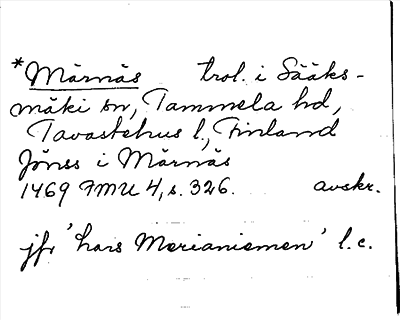 *Märnäs trol. i Sääks-
mäki sn, Tammela hd,
Tavastehus l., Finland
Jönss i Märnäs
1469 FMU 4, s. 326. avskr.
jfr 'hans Merianiemen' l.c.